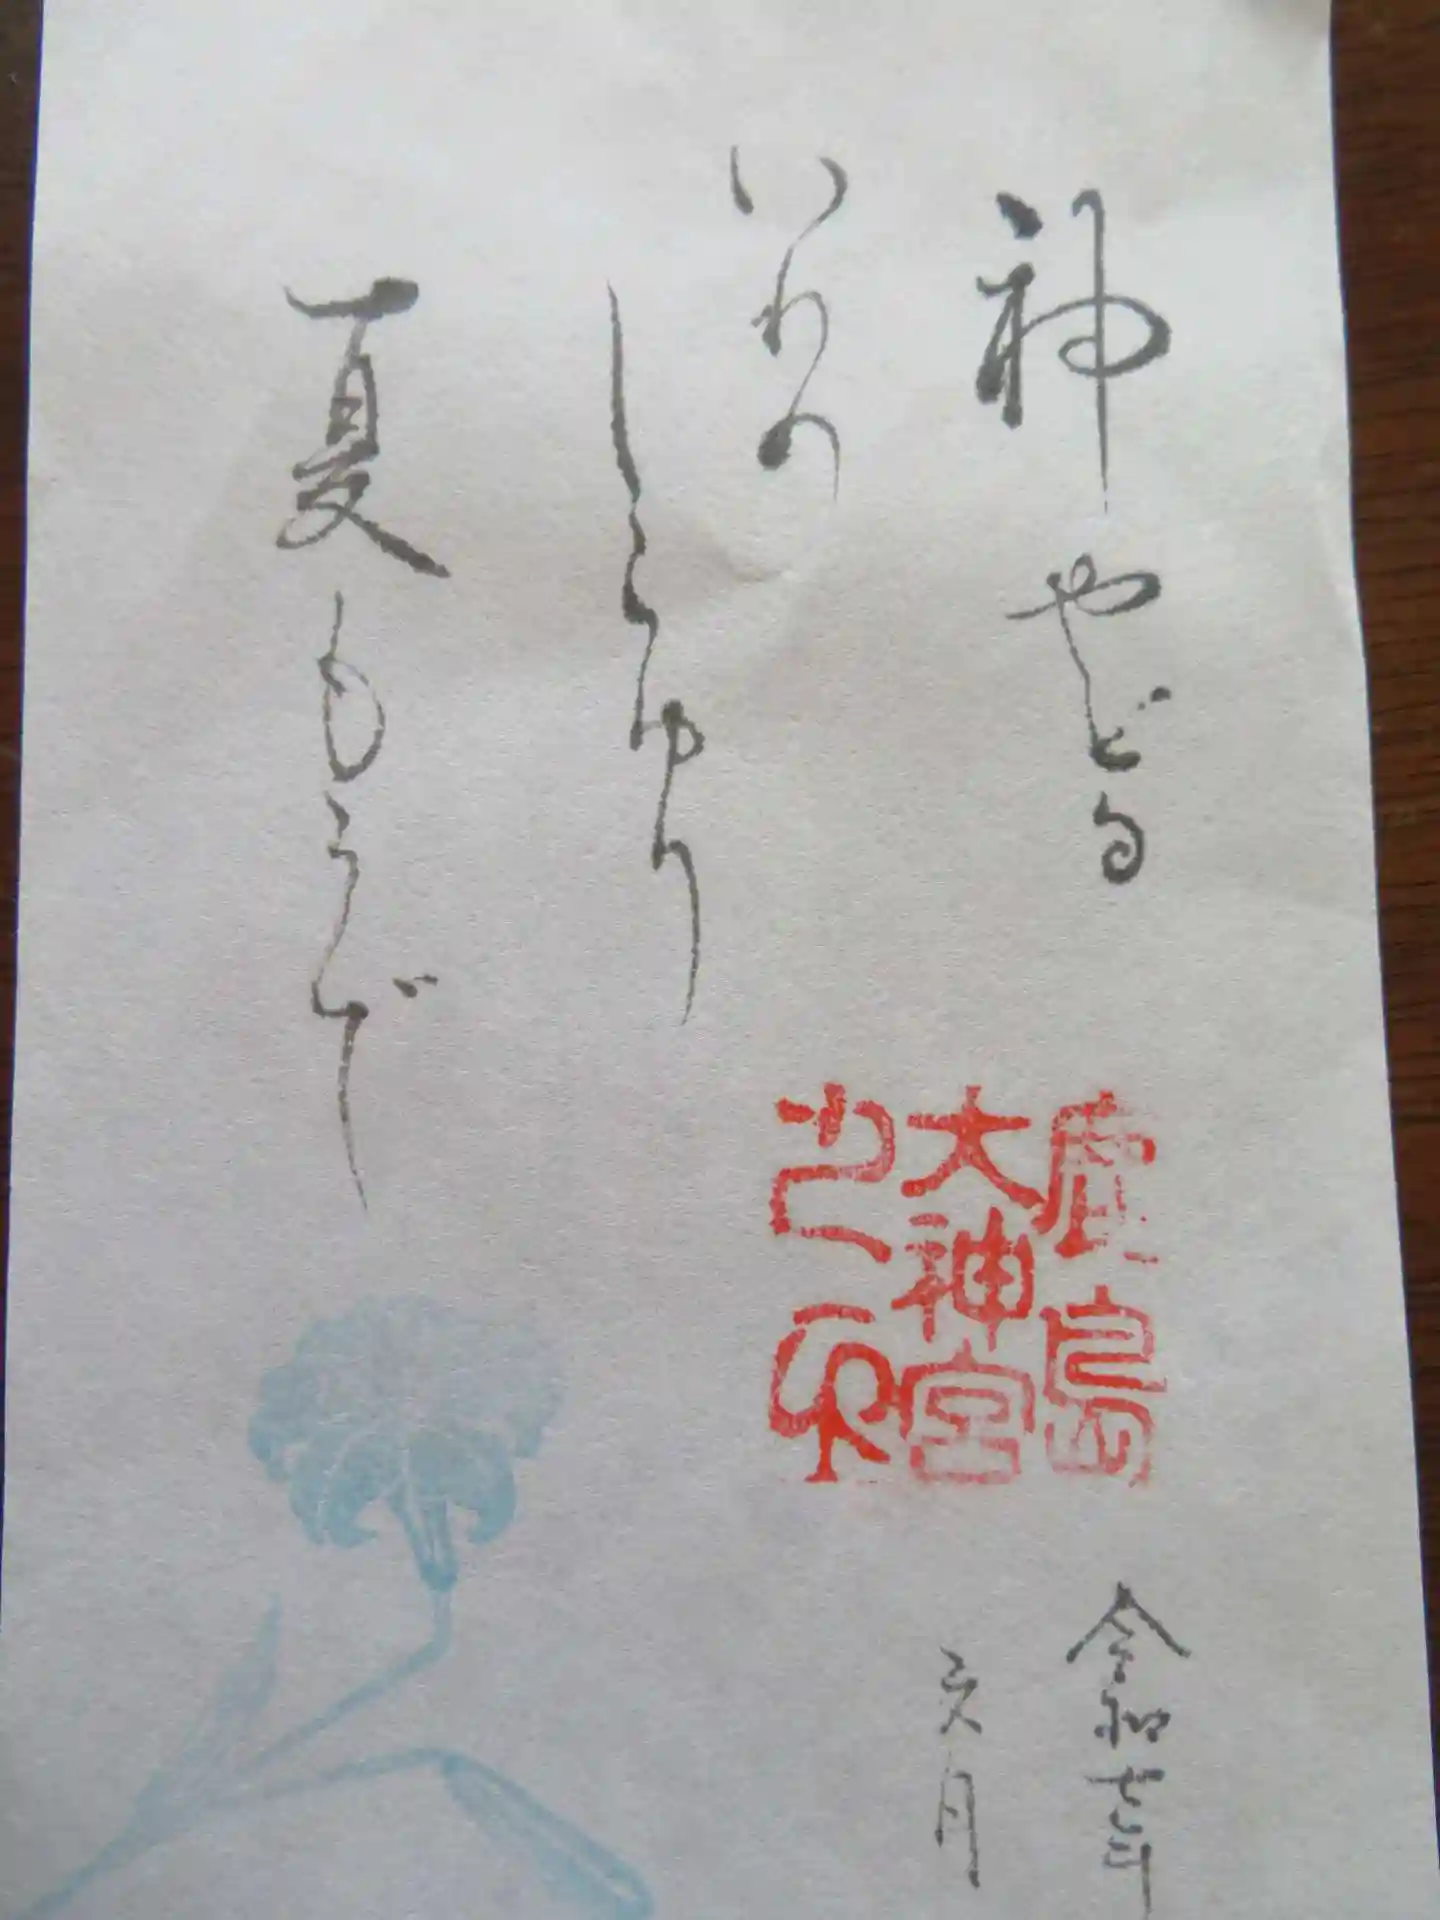 神やどる
いわの
しらゆり
夏もうで
鹿島
大神宮
之印
令和七年
六月